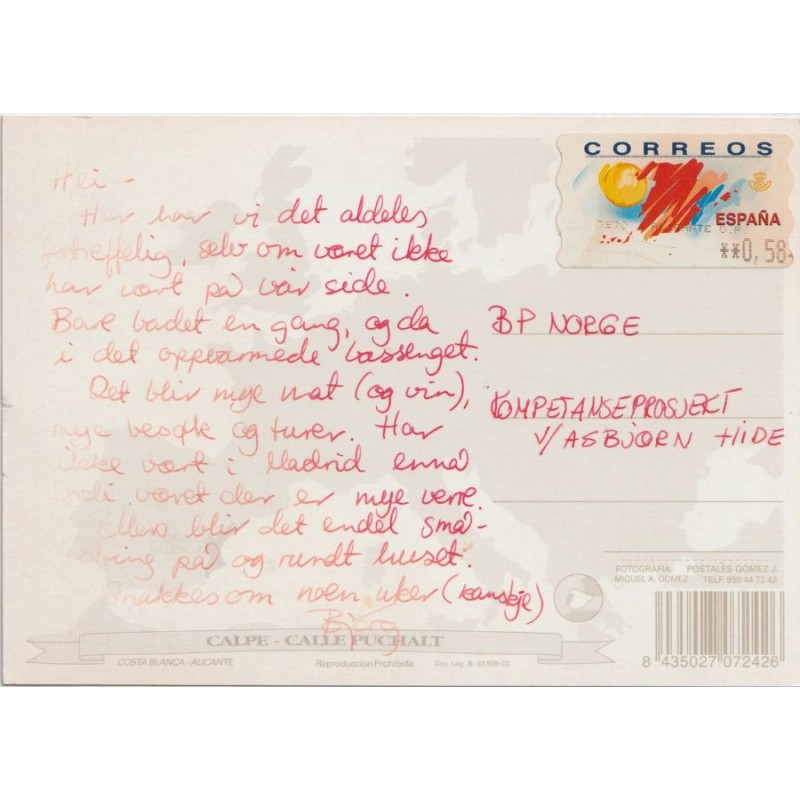 Hei -
Her har vi det aldeles
fortreffelig, selv om været ikke
har vært på vår side.
Bare badet en gang, og da
i det oppvarmede bassenget.
Det blir mye mat (og vin),
mye besøk og turer. Har
ikke vært i Madrid ennå
fordi været der er mye verre.
Ellers blir det endel små-
på og rundt huset.
Snakkes om noen uker (kanskje)
CORREOS
ESPAÑA
**0,58
BP NORGE
KOMPETANSEPROSJEKT
V/ASBJØRN HIDE
FOTOGRAFIA: POSTALES GOMEZ J.
MIGUEL A. GOMEZ TELF. 958 44 72 42
CALPE - CALLE PUCHALT
COSTA BLANCA - ALICANTE
Reproducción Prohibida
8 435027 072426